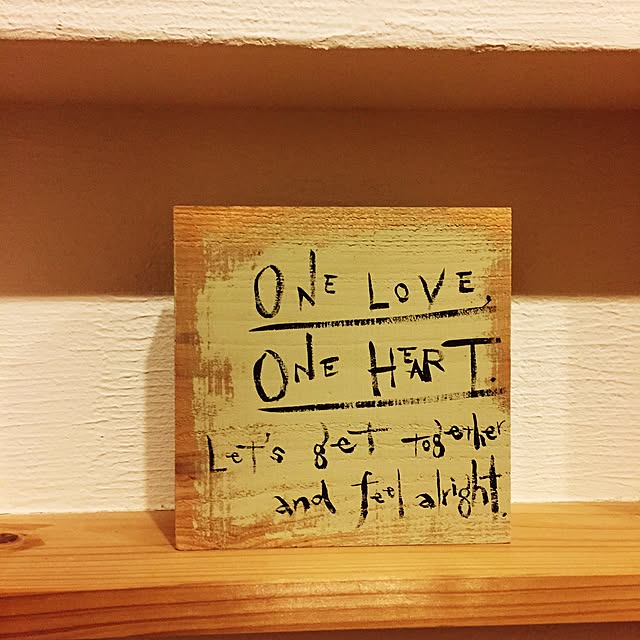 ONE LOVE,
ONE HEART.
Let's get together
and feel alright.